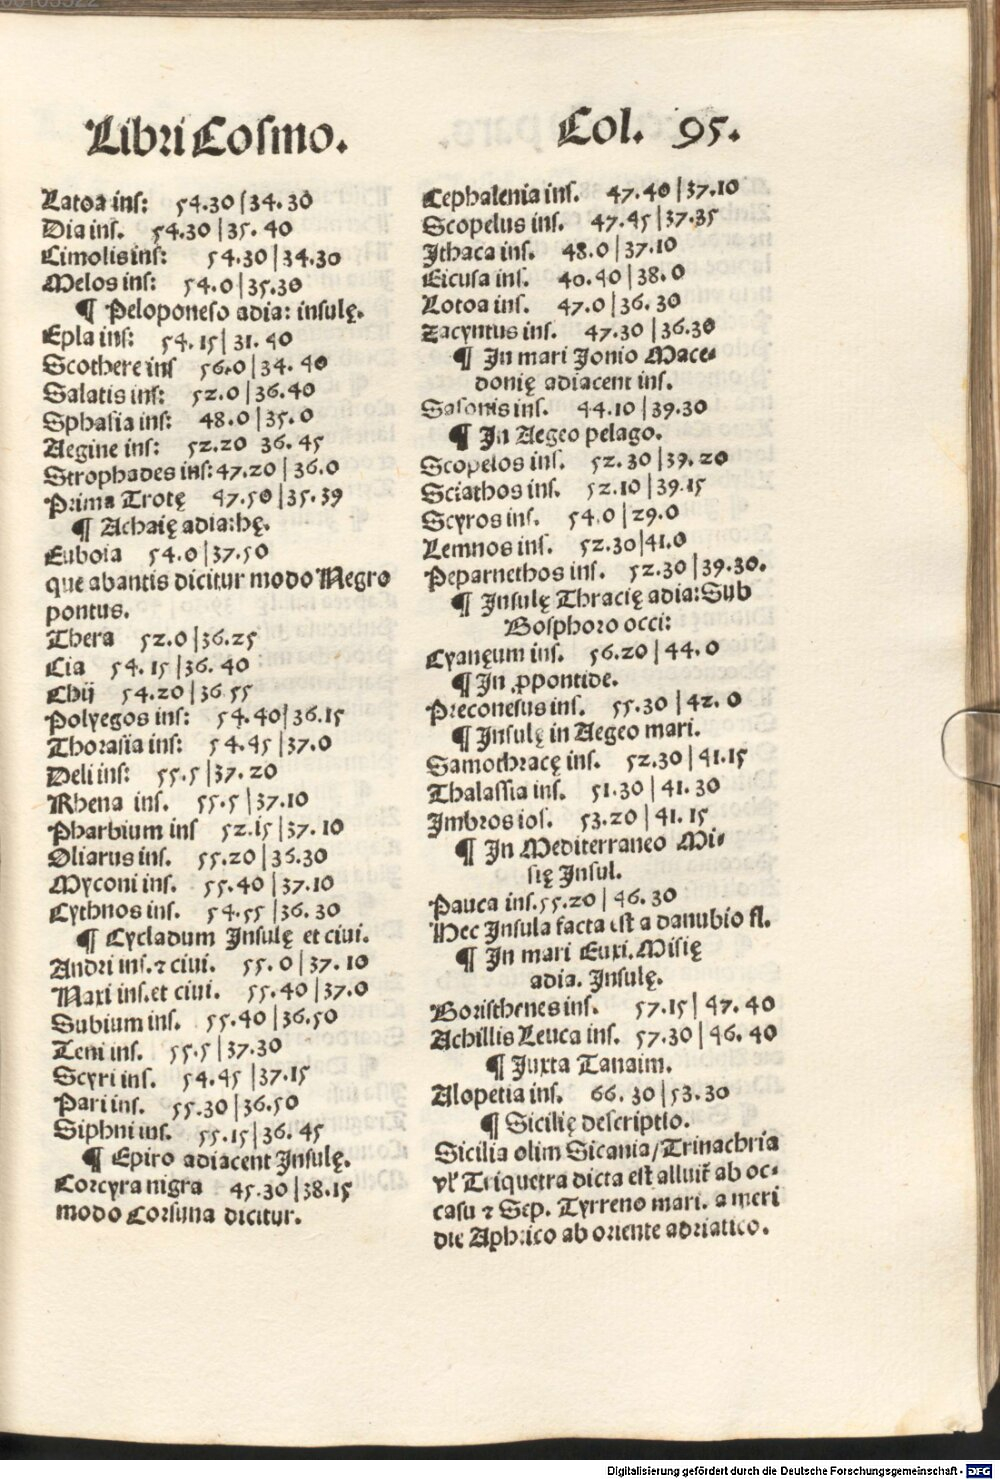 Libri Cosmo.
Col. 95.
Latoa ins: 54.30|34.30
Dia ins. 54.30|35.40
Cimolis ins: 54.30|34.30
Melos ins: 54.0|35.30
¶ Peloponeso adia: insulę.
Epla ins: 54.15|31.40
Scothere ins 56.0|34.40
Salatis ins: 52.0|36.40
Sphasia ins: 48.0|35.0
Aegine ins: 52.20 36.45
Strophades ins: 47.20|36.0
Prima Trotę 47.50|35.39
¶ Achaię adia: hę.
Euboia 54.0|37.50
que abantis dicitur modo Negro
pontus.
Thera 52.0|36.25
Cia 54.15|36.40
Chij 54.20|36 55
Polyegos ins: 54.40|36.15
Thorasia ins: 54.45|37.0
Deli ins: 55.5|37.20
Rhena ins. 55.5|37.10
Pharbium ins 52.15|37.10
Oliarus ins. 55.20|36.30
Myconi ins. 55.40|37.10
Cythnos ins. 54.55|36.30
¶ Cycladum Insulę et ciui.
Andri ins. ⁊ ciui. 55.0|37.10
Naxi ins. et ciui. 55.40|37.0
Subium ins. 55.40|36.50
Teni ins. 55.5|37.30
Scyri ins. 54.45|37.15
Pari ins. 55.30|36.50
Siphni ins. 55.15|36.45
¶ Epiro adiacent Insulę.
Corcyra nigra 45.30|38.15
modo Corsuna dicitur.
Cephalenia ins. 47.40|37.10
Scopelus ins. 47.45|37.35
Ithaca ins. 48.0|37.10
Eicusa ins. 40.40|38.0
Lotoa ins. 47.0|36.30
Zacyntus ins. 47.30|36.30
¶ In mari Ionio Mace-
donię adiacent ins.
Sasonis ins. 44.10|39.30
¶ In Aegeo pelago.
Scopelos ins. 52.30|39.20
Sciathos ins. 52.10|39.15
Scyros ins. 54.0|29.0
Lemnos ins. 52.30|41.0
Peparnethos ins. 52.30|39.30.
¶ Insulę Thracię adia: Sub
Bosphoro occi:
Cyanęum ins. 56.20|44.0
¶ In ꝓpontide.
Preconesus ins. 55.30|42.0
¶ Insulę in Aegeo mari.
Samothracę ins. 52.30|41.15
Thalassia ins. 51.30|41.30
Imbros ios. 53.20|41.15
¶ In Mediterraneo Mi-
się Insul.
Pauca ins. 55.20|46.30
Hec Insula facta est a danubio fl.
¶ In mari Euxi. Misię
adia. Insulę.
Boristhenes ins. 57.15|47.40
Achillis Leuca ins. 57.30|46.40
¶ Juxta Tanaim.
Alopetia ins. 66.30|53.30
¶ Sicilię descriptio.
Sicilia olim Sicania/Trinachria
vl' Triquetra dicta est alluit̃ ab oc-
casu ⁊ Sep. Tyrreno mari. a meri
die Aphrico ab oriente adriatico.
Digitalisierung gefördert durch die Deutsche Forschungsgemeinschaft - DFG